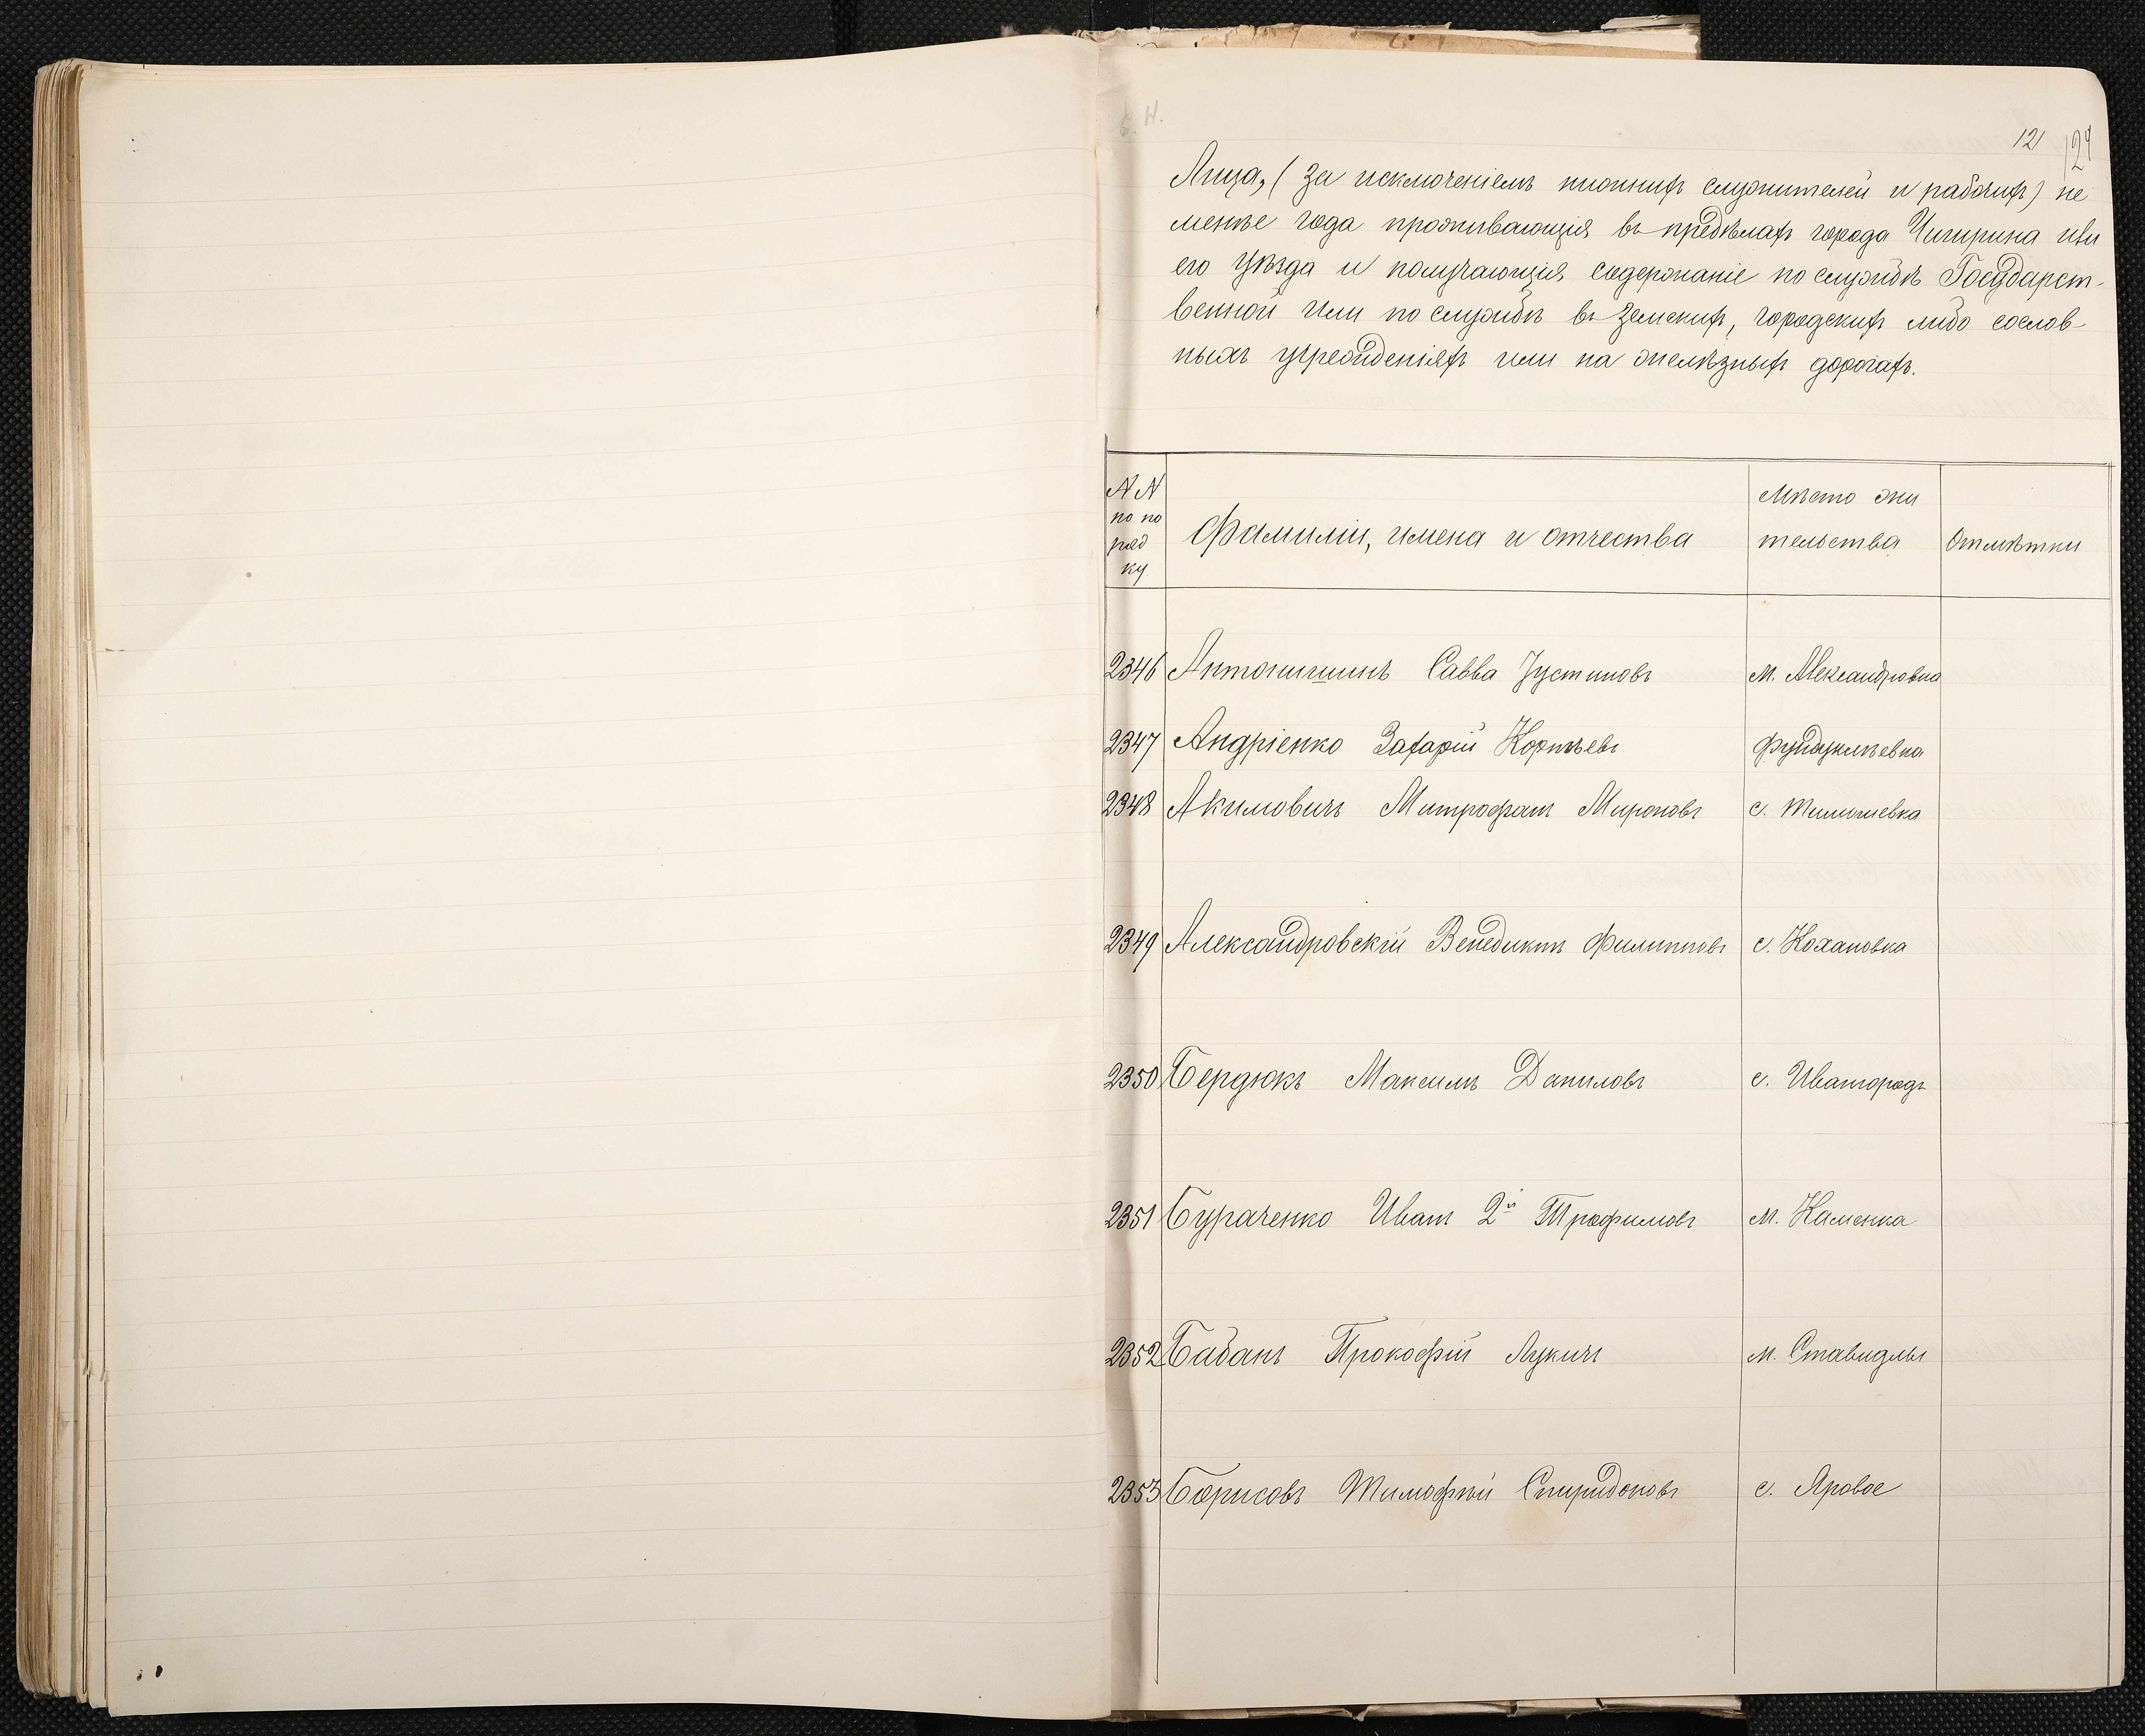 121
124
Лица, (за исключеніемъ нижнихъ служителей и рабочихъ) не
менѣе года проживающія въ предѣлахъ города Чигирина или
его уѣзда и получающія содержаніе по службѣ Государст-
венной или по службѣ въ земскихъ, городскихъ либо сослов-
ныхъ учрежденіяхъ или на желѣзныхъ дорогахъ.
NN по по ряд ку
Фамиліи, имена и отчества
Мѣсто жи тельства
Отмѣтки
2346 Антонишинъ Савва Іустиновъ м. Александровка
2347 Андріенко Захарій Корнѣевъ Фундуклѣевка
2348 Акимовичъ Митрофанъ Мироновъ с. Тимошевка
2349 Александровскій Венедиктъ Филипповъ с. Кохановка
2350 Бердюкъ Максимъ Даниловъ с. Ивангородъ
2351 Бураченко Иванъ 2й Трофимовъ м. Каменка
2352 Бабакъ Прокофій Лукичъ м. Ставидлы
2353 Борисовъ Тимофѣй Спиридоновъ с. Яровое